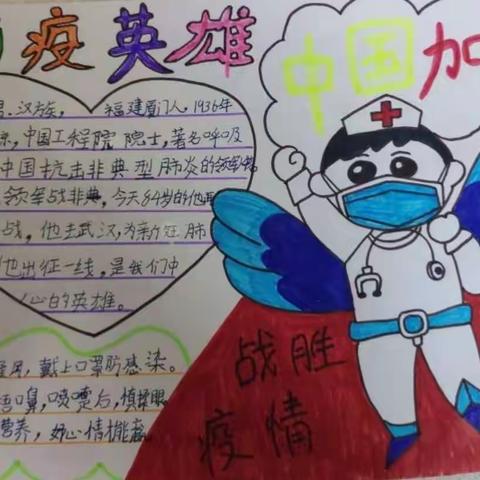 疫英雄
中国加
汉族， 福建厦门人，1936年
中国工程院院士，著名呼及
中国抗击非典型肺炎的领军
领军战非典，今天84岁的他再
战，他去武汉，为新冠肺
他出征一线，是我们中
心目的英雄。
战胜
疫情
，戴上口罩防感染。
捂口鼻，咳嚏后，慎揉眼
营养，好心情能赢